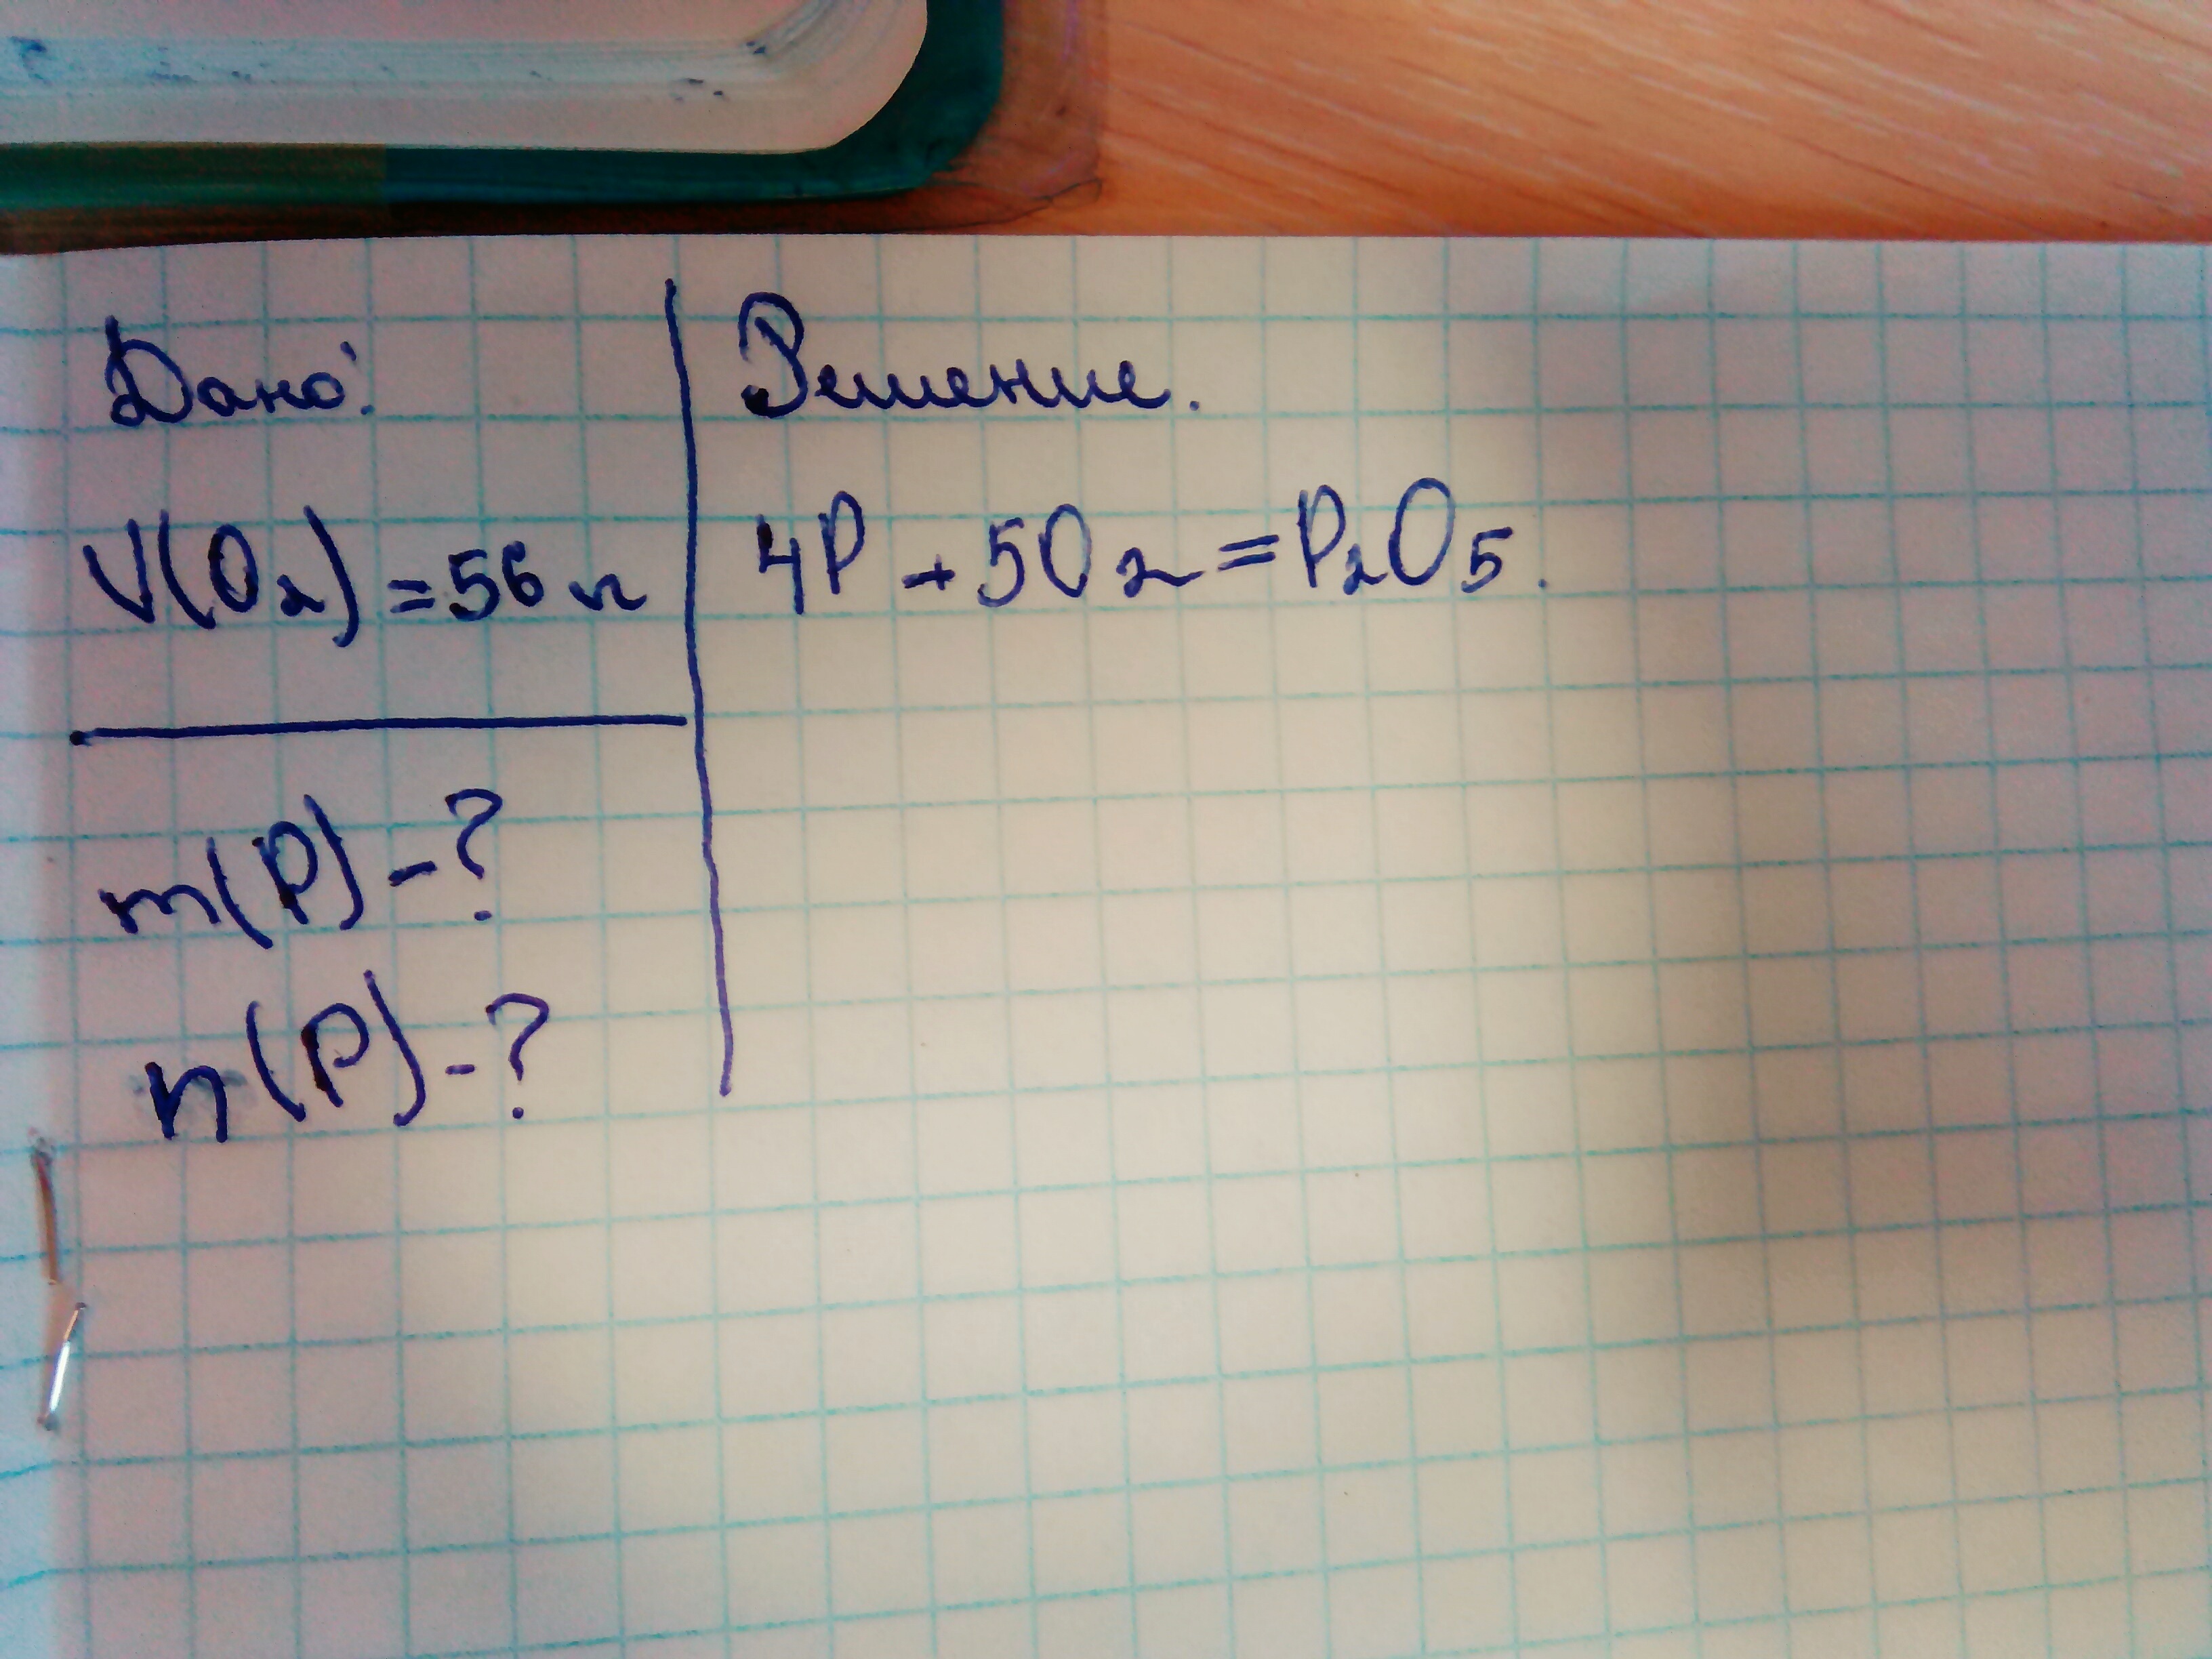 Дано:
V(O₂) = 56 л
m(P) - ?
n(P) - ?
Решение.
4P + 5O₂ = P₂O₅.